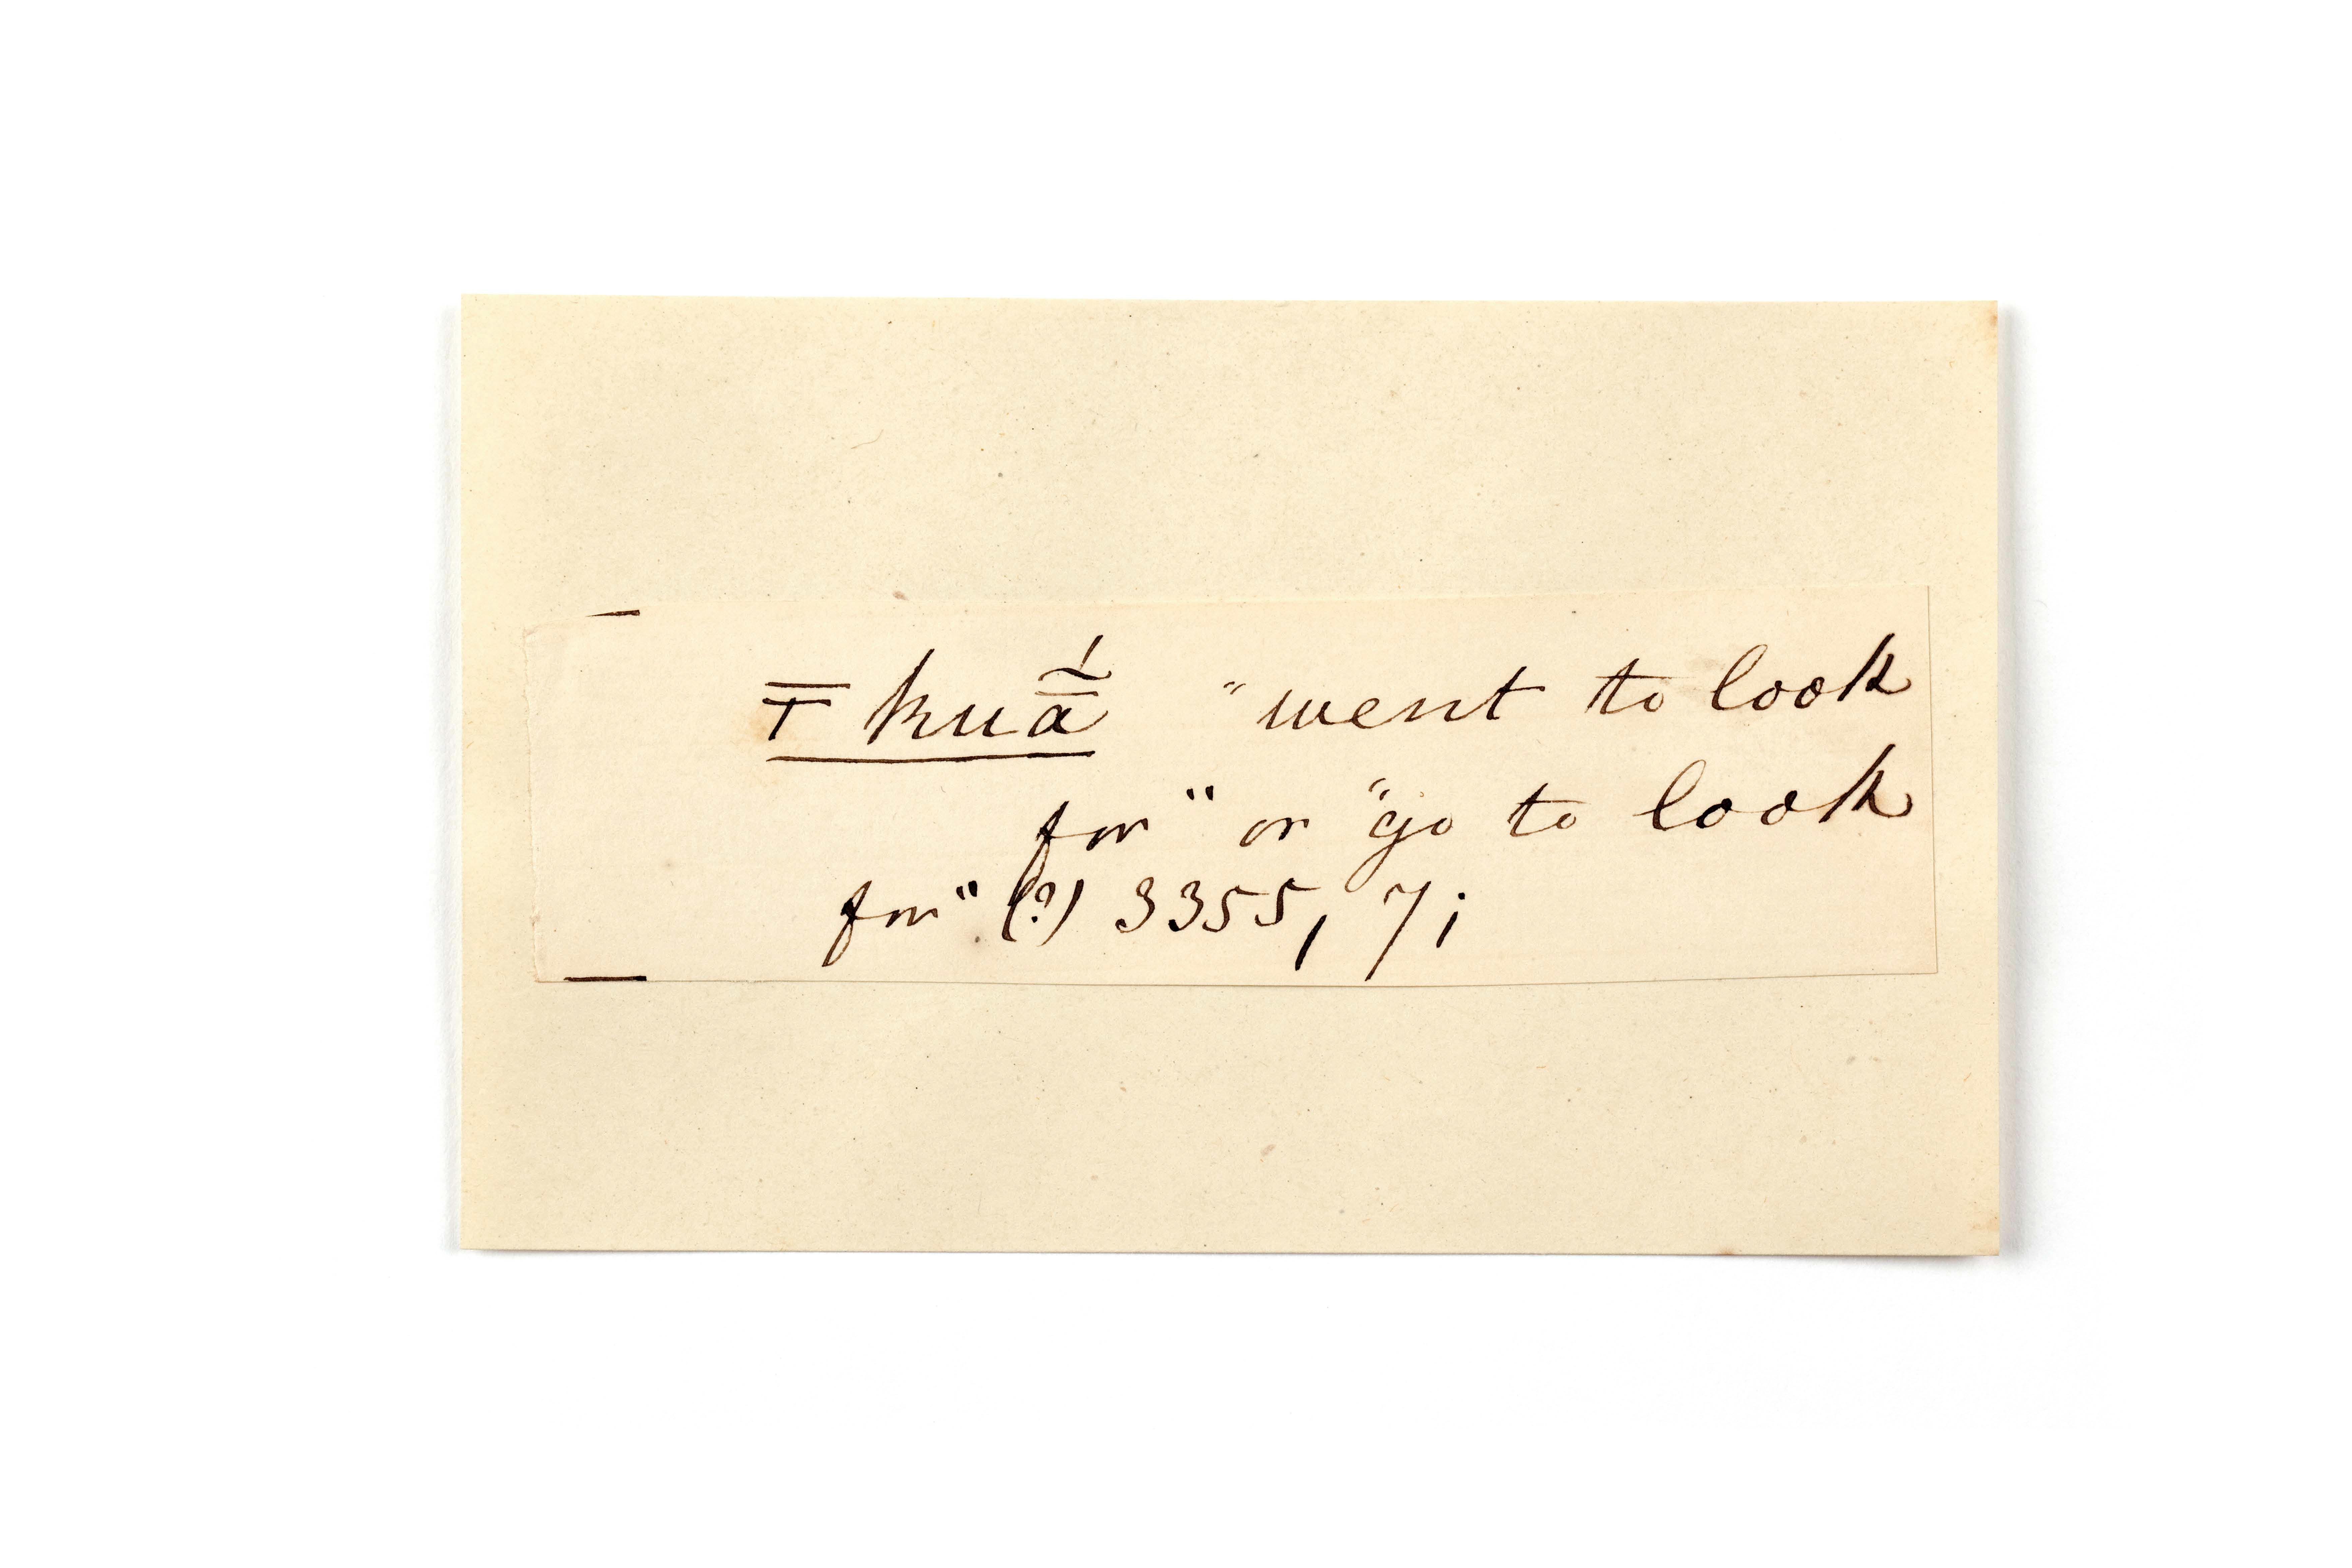 ₸kuá̰̄ "went to look
for" or "go to look
for" (?) 3355, 7;